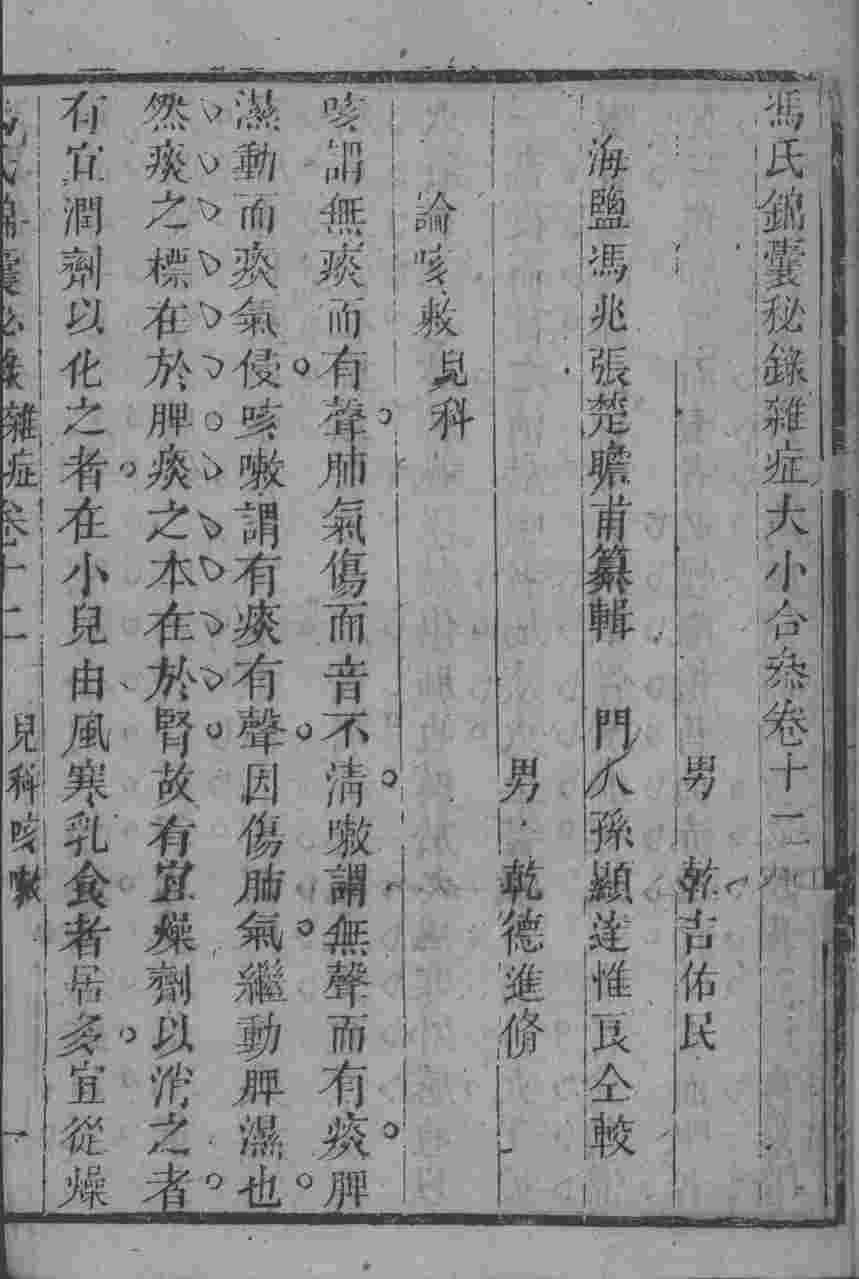 馮氏錦囊秘錄雜症大小合叅卷十二
男　乾吉佑民
海鹽馮兆張楚瞻甫纂輯　門人孫顯達惟良仝較
男　乾德進脩
論咳嗽兒科
咳謂無痰而有聲肺氣傷而音不清嗽謂無聲而有痰脾
濕動而痰氣侵咳嗽謂有痰有聲因傷肺氣繼動脾濕也
然痰之標在於脾痰之本在於腎故有宜燥劑以消之者
有宜潤劑以化之者在小兒由風寒乳食者居多宜從燥
馮氏錦囊秘錄雜症卷十二　兒科咳嗽　一